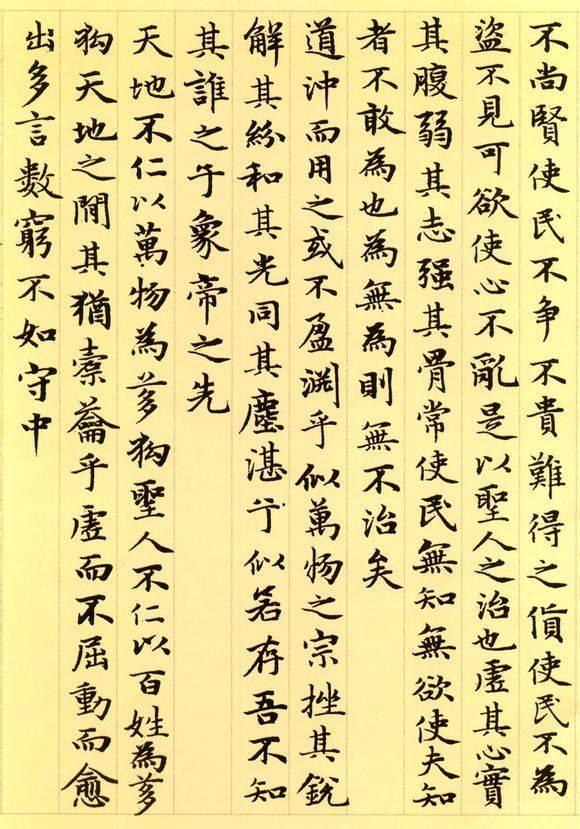 不尚賢使民不争不貴難得之貨使民不為
盜不見可欲使心不亂是以聖人之治也虛其心實
其腹弱其志强其骨常使民無知無欲使夫知
者不敢為也為無為則無不治矣
道沖而用之或不盈淵乎似萬物之宗挫其銳
解其紛和其光同其塵湛乎似若存吾不知
其誰之子象帝之先
天地不仁以萬物為芻狗聖人不仁以百姓為芻
狗天地之間其猶橐蘥乎虛而不屈動而愈
出多言數窮不如守中